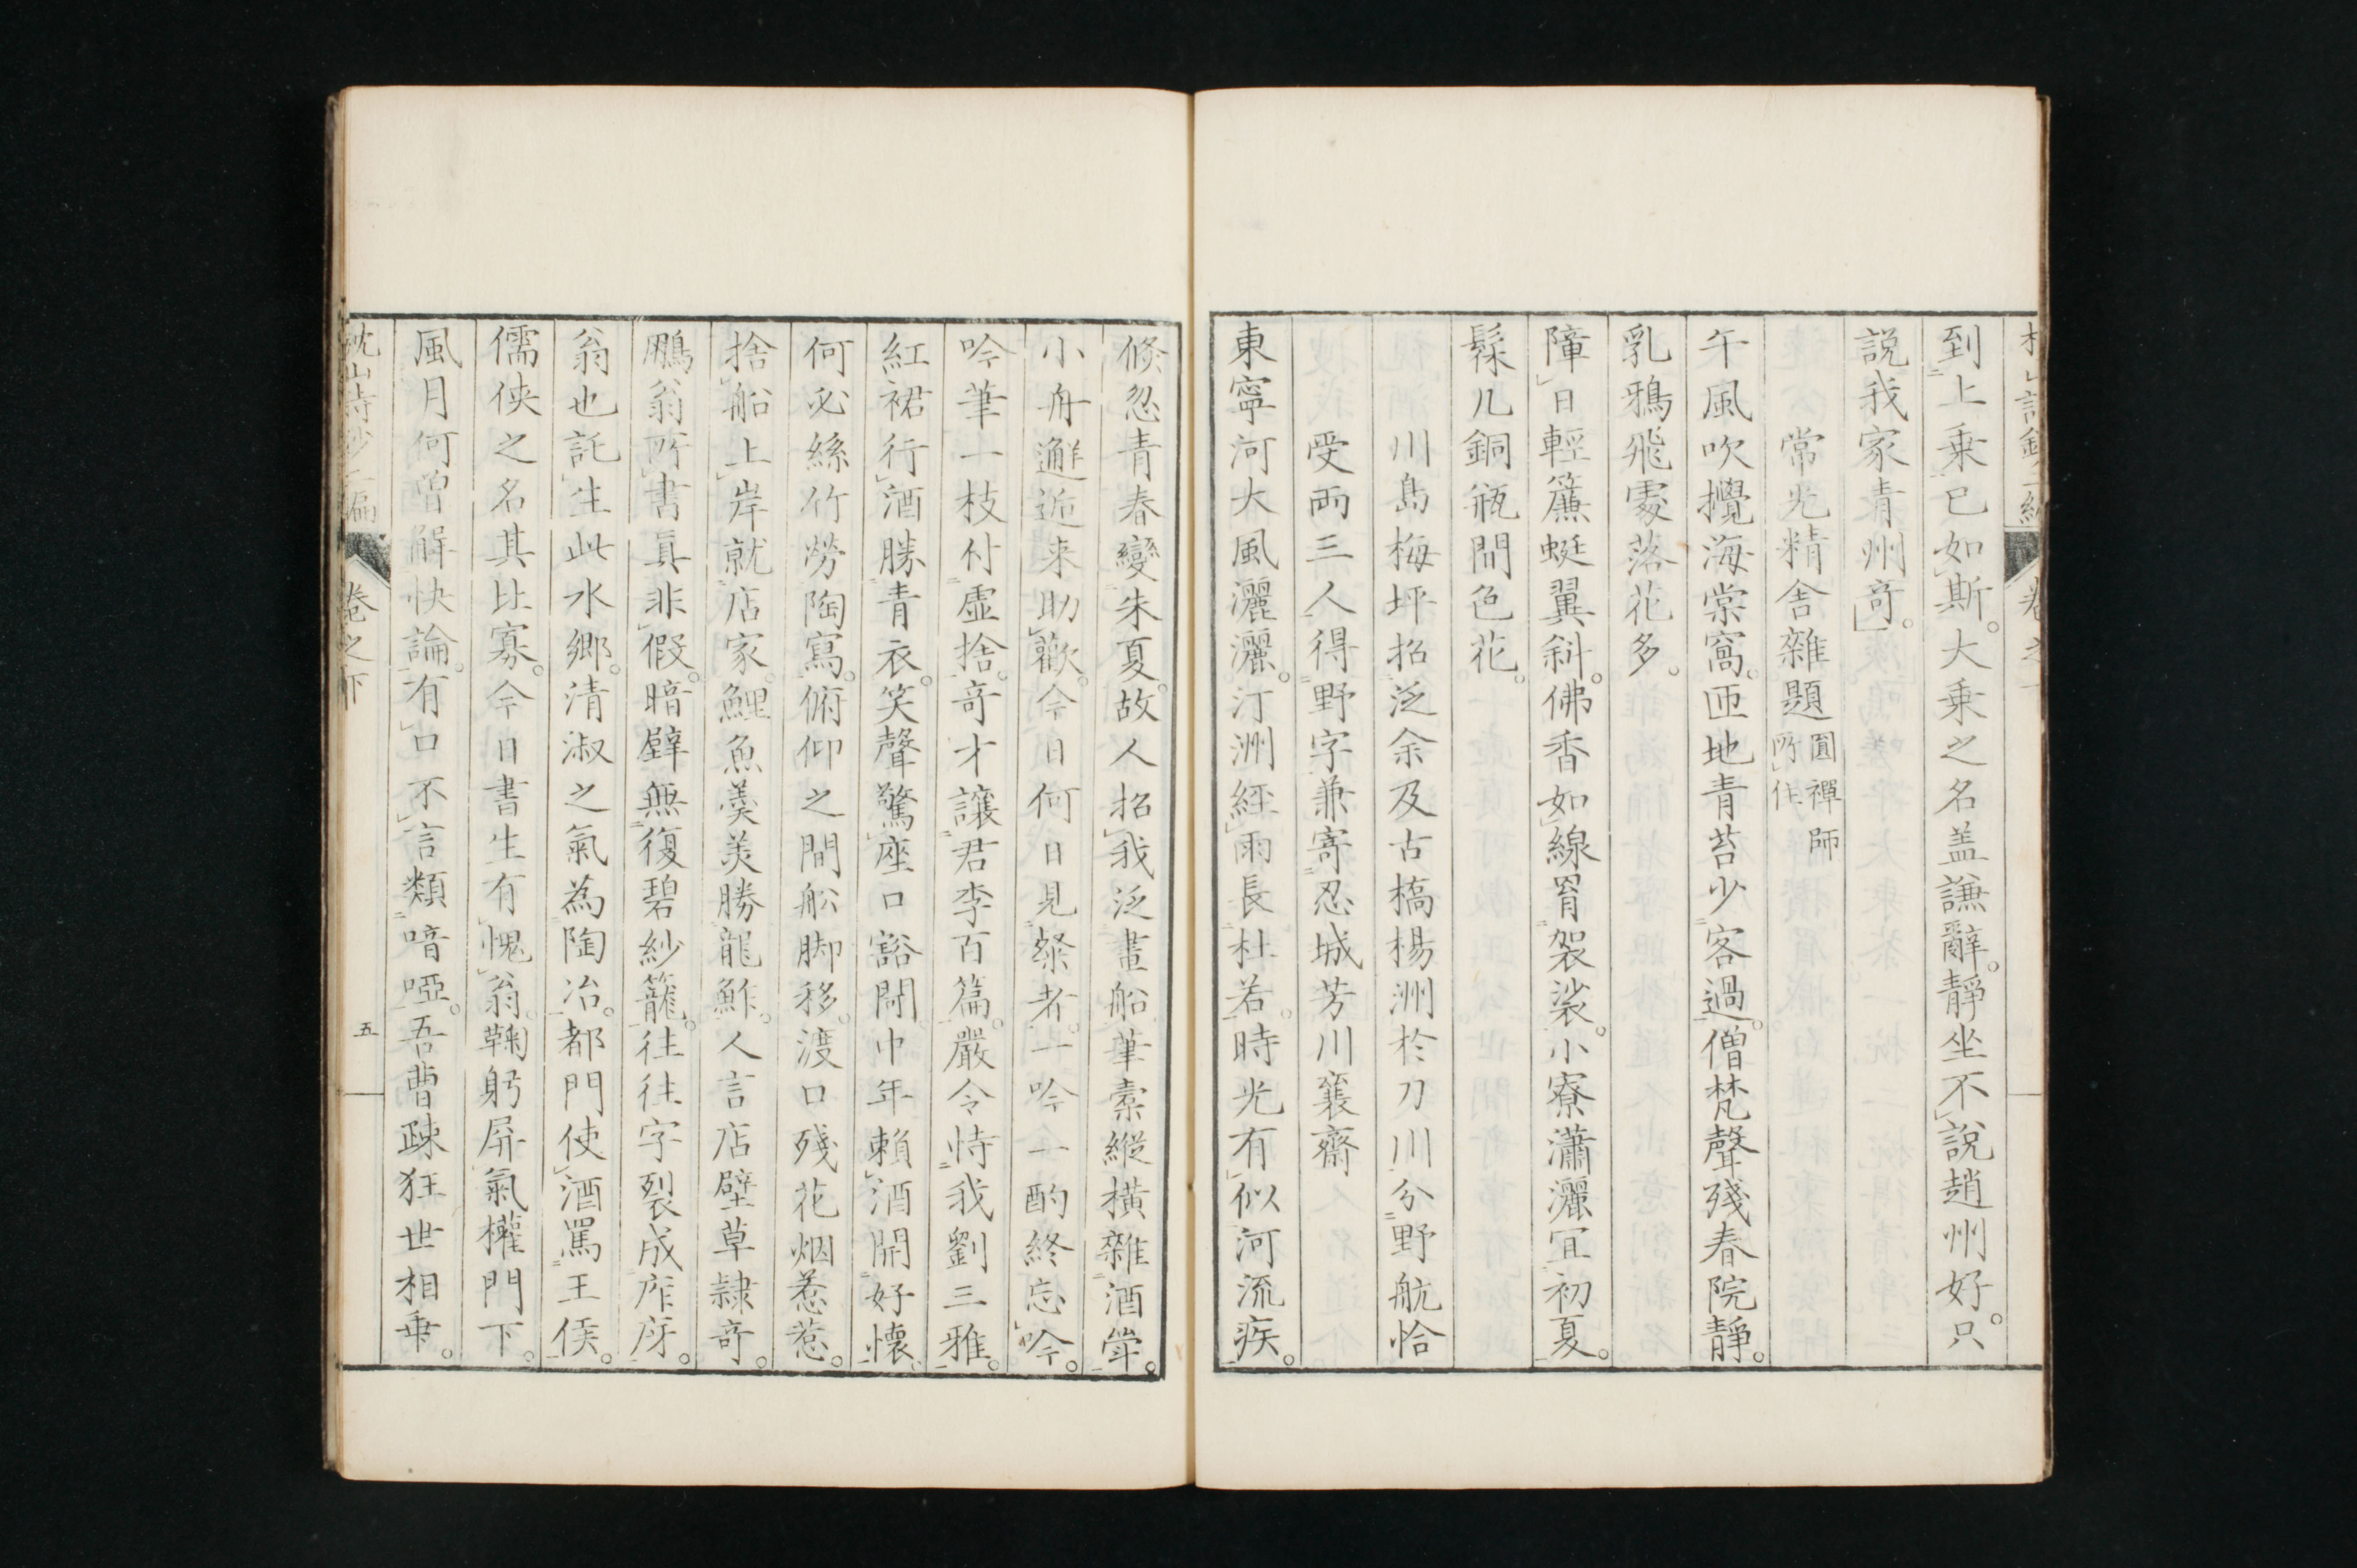 到上乗已如斯。大乗之名盖謙辭。靜坐不說趙州好。只
説我家青州竒。
常光精舍雜題圓禪師所作
午風吹攪海棠窩。匝地青苔少客過。僧梵聲殘春院靜。
乳鴉飛處落花多。
障日輕簾蜓翼斜。佛香如線罥袈裟。小寮瀟灑宜初夏。
髹几銅瓶閒色花。
川島梅坪招泛余及古橋楊洲於刀川分野航恰
受兩三人得野字兼寄忍城芳川襄齋
東寧河大風灑灑。汀洲經雨長杜若。時光有似河流疾。
倐忽青春變朱夏。故人招我泛畫船。筆橐縱橫雜酒斝。
小舟邂逅来助歡。今日何日見粲者。一吟一酌終忘吟。
吟筆一枝付虛捨。竒才讓君李百篇。嚴令恃我劉三雅。
紅裙行酒勝青衣。笑聲驚座口谽閕。中年賴酒開好懷。
何必絲竹勞陶寫。俯仰之間舩脚移。渡口殘花烟惹惹。
捨船上岸就店家。鯉魚羮美勝龍鮓。人言店壁草隷竒。
鵬翁所書眞非假。暗壁無復碧紗籠。往往字裂成庌。
翁也託生此水郷。清淑之氣為陶冶。都門使酒罵王侯。
儒俠之名其比寡。今日書生有愧翁。鞠躬屏氣權門下。
風月何曽解快論。有口不言類喑啞。吾曹疎狂世相乖。
枕山詩鈔二編 卷之下 五